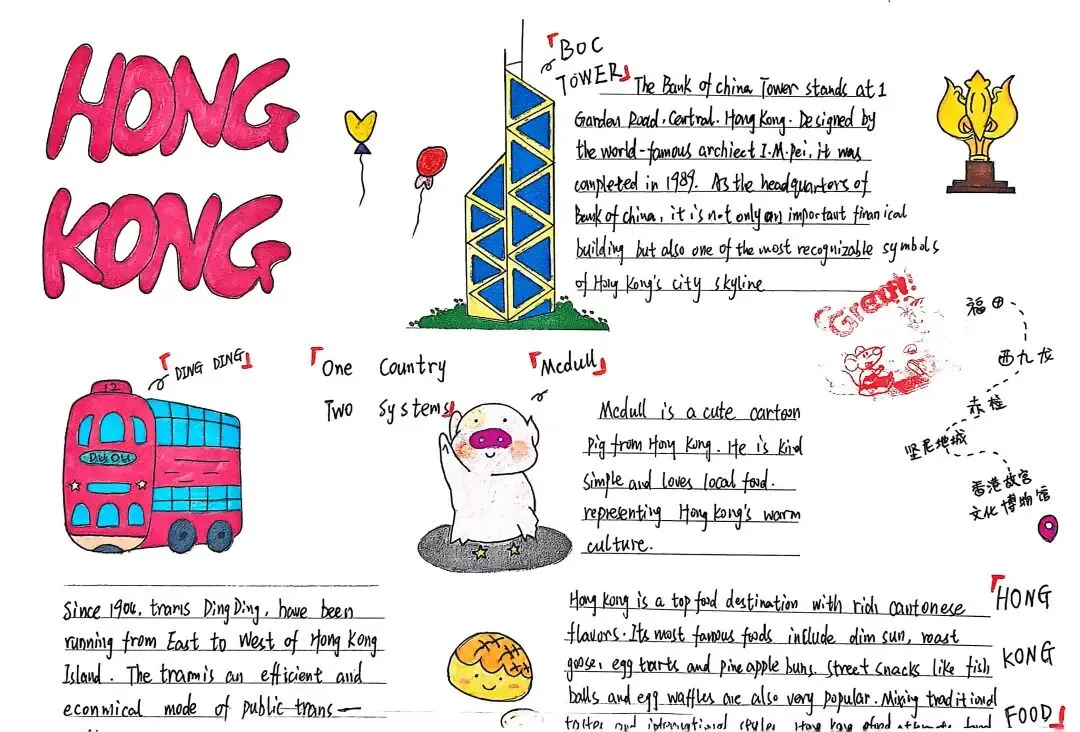 HONG
KONG
「BOC
TOWER」
The Bank of china Tower stands at 1
Garden Road. Central. Hong Kong. Designed by
the world-famous archiect I.M.Pei, it was
completed in 1989. As the headquarters of
Bank of china, it is not only an important finanical
building but also one of the most recognizable symbols
of Hong Kong's city skyline
Great!
福田
西九龙
赤柱
坚尼地城
香港故宫
文化博物馆
「DING DING」
12
「One Country
Two Systems」
「Mcdull」
Mcdull is a cute cartoon
pig from Hong Kong. He is kind
simple and loves local food.
representing Hong kong's warm
culture.
Since 1904, trams DingDing, have been
running from East to West of Hong Kong
Island. The tram is an efficient and
econmical mode of public trans—
Hong Kong is a top food destination with rich cantonese
flavors. Its most famous foods include dim sun, roast
goose, egg trarts and pineapple buns. Street snacks like fish
balls and egg waffles are also very popular. Mixing traditional
「HONG
KONG
FOOD」